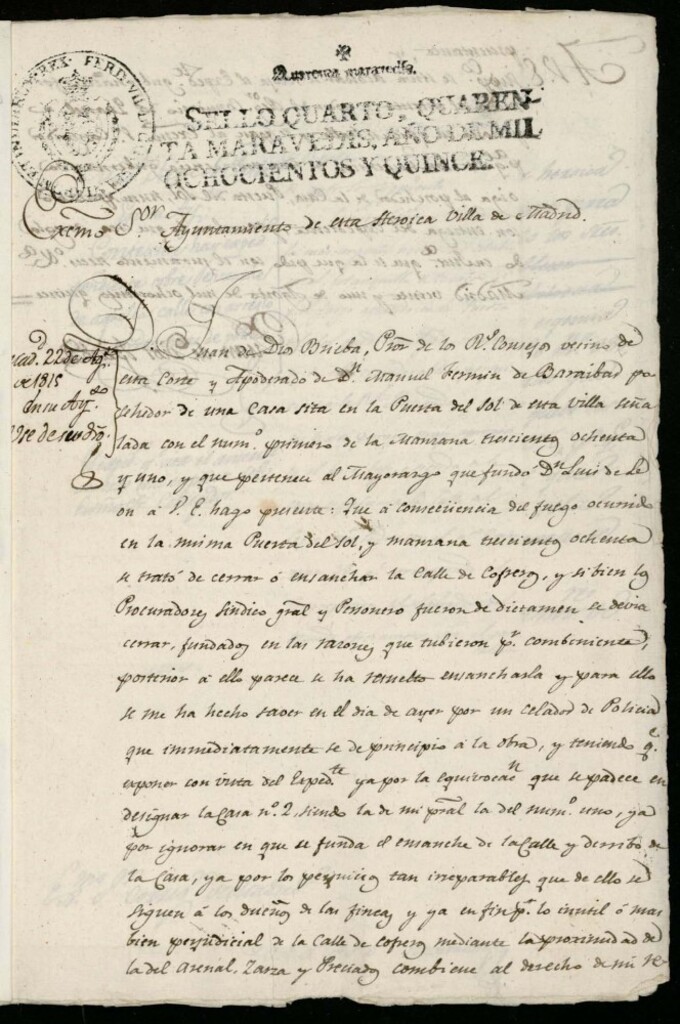 Quarenta maravedis.
SELLO QUARTO, QUAREN-
TA MARAVEDIS, AÑO DE MIL
OCHOCIENTOS Y QUINCE.
Excmo Sor Ayuntamiento de esta Heroica Villa de Madrid.
22 de Agto
de 1815
Juan de Dios Brieba, Pror de los Rs Consejos vecino de
esta Corte y Apoderado de Dn Manuel Fermin de Baraibad po
sehidor de una Casa sita en la Puerta del Sol de esta Villa seña
lada con el numo primero de la Manzana trescientos ochenta
y uno, y que pertenece al Mayorazgo que fundo Dn Luis de Le
on á V. E. hago presente: Que á consecüencia del fuego ocurrido
en la misma Puerta del Sol, y manzana trescientos ochenta
se trató de cerrar ó ensanchar la Calle de Cofreros, y si bien los
Procuradores Sindico gral y Personero fueron de dictamen se devia
cerrar, fundados en las razones que tubieron pr combeniente,
posterior á ello parece se ha resuelto ensancharla y para ello
se me ha hecho saver en el dia de ayer por un celador de Policia
que immediatamente se de principio á la obra, y teniendo qe
exponer con vista del Expedte ya por la equivocacn que se padece en
designar la Casa no. 2, siendo la de mi pral la del numo uno, ya
por ignorar en que se funda el ensanche de la Calle y derribo de
la Casa, ya por los perjuicios tan irreparables que de ello se
siguen á los dueños de las fincas y ya en fin pr lo inutil ó mas
bien perjudicial de la Calle de Cofreros mediante la proximidad de
la del Arenal, Zarza y Preciados combiene al derecho de mi re-